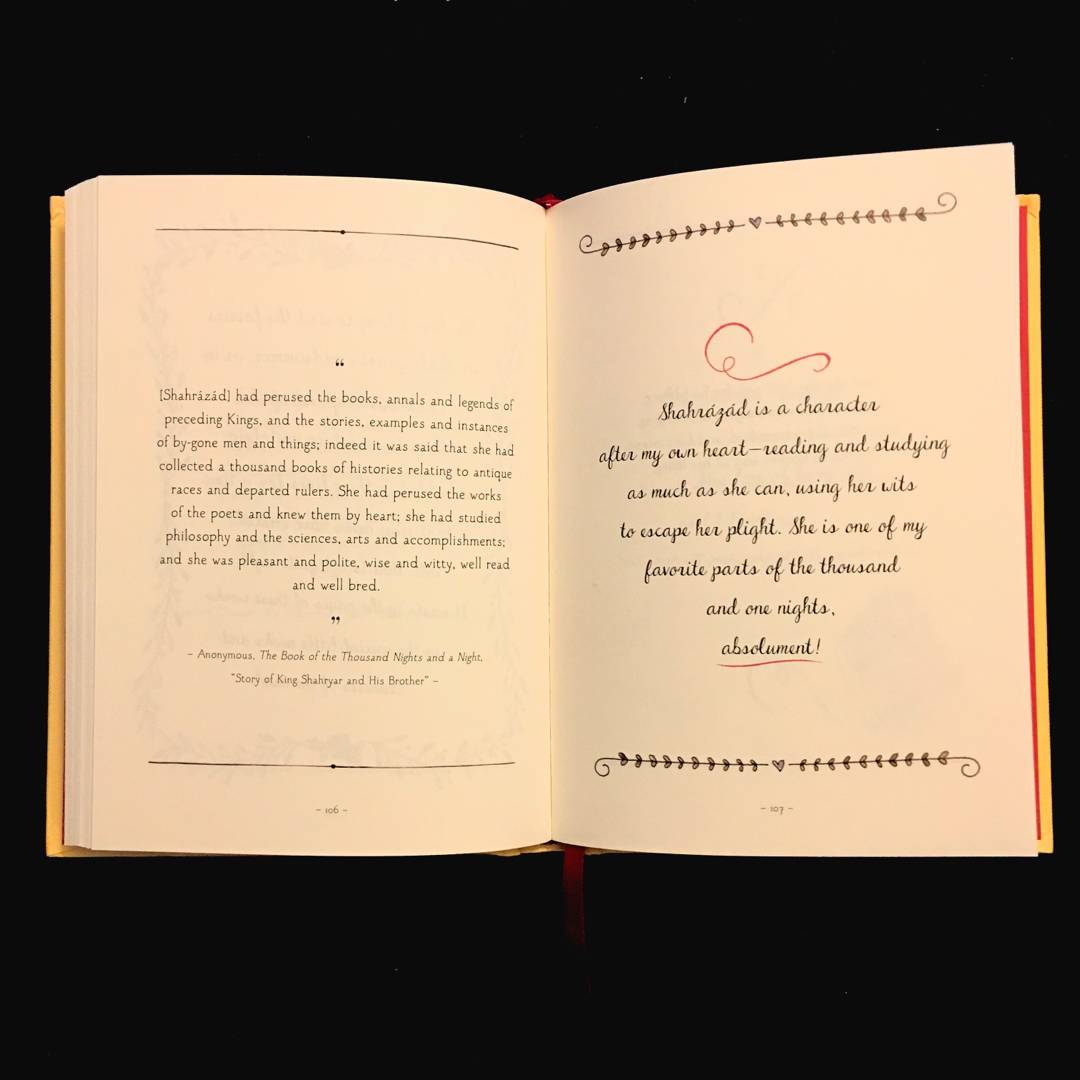 “
[Shahrázád] had perused the books, annals and legends of
preceding Kings, and the stories, examples and instances
of by-gone men and things; indeed it was said that she had
collected a thousand books of histories relating to antique
races and departed rulers. She had perused the works
of the poets and knew them by heart; she had studied
philosophy and the sciences, arts and accomplishments;
and she was pleasant and polite, wise and witty, well read
and well bred.
”
– Anonymous, The Book of the Thousand Nights and a Night,
“Story of King Shahryar and His Brother” –
– 106 –
Shahrázád is a character
after my own heart—reading and studying
as much as she can, using her wits
to escape her plight. She is one of my
favorite parts of the thousand
and one nights,
absolument!
– 107 –